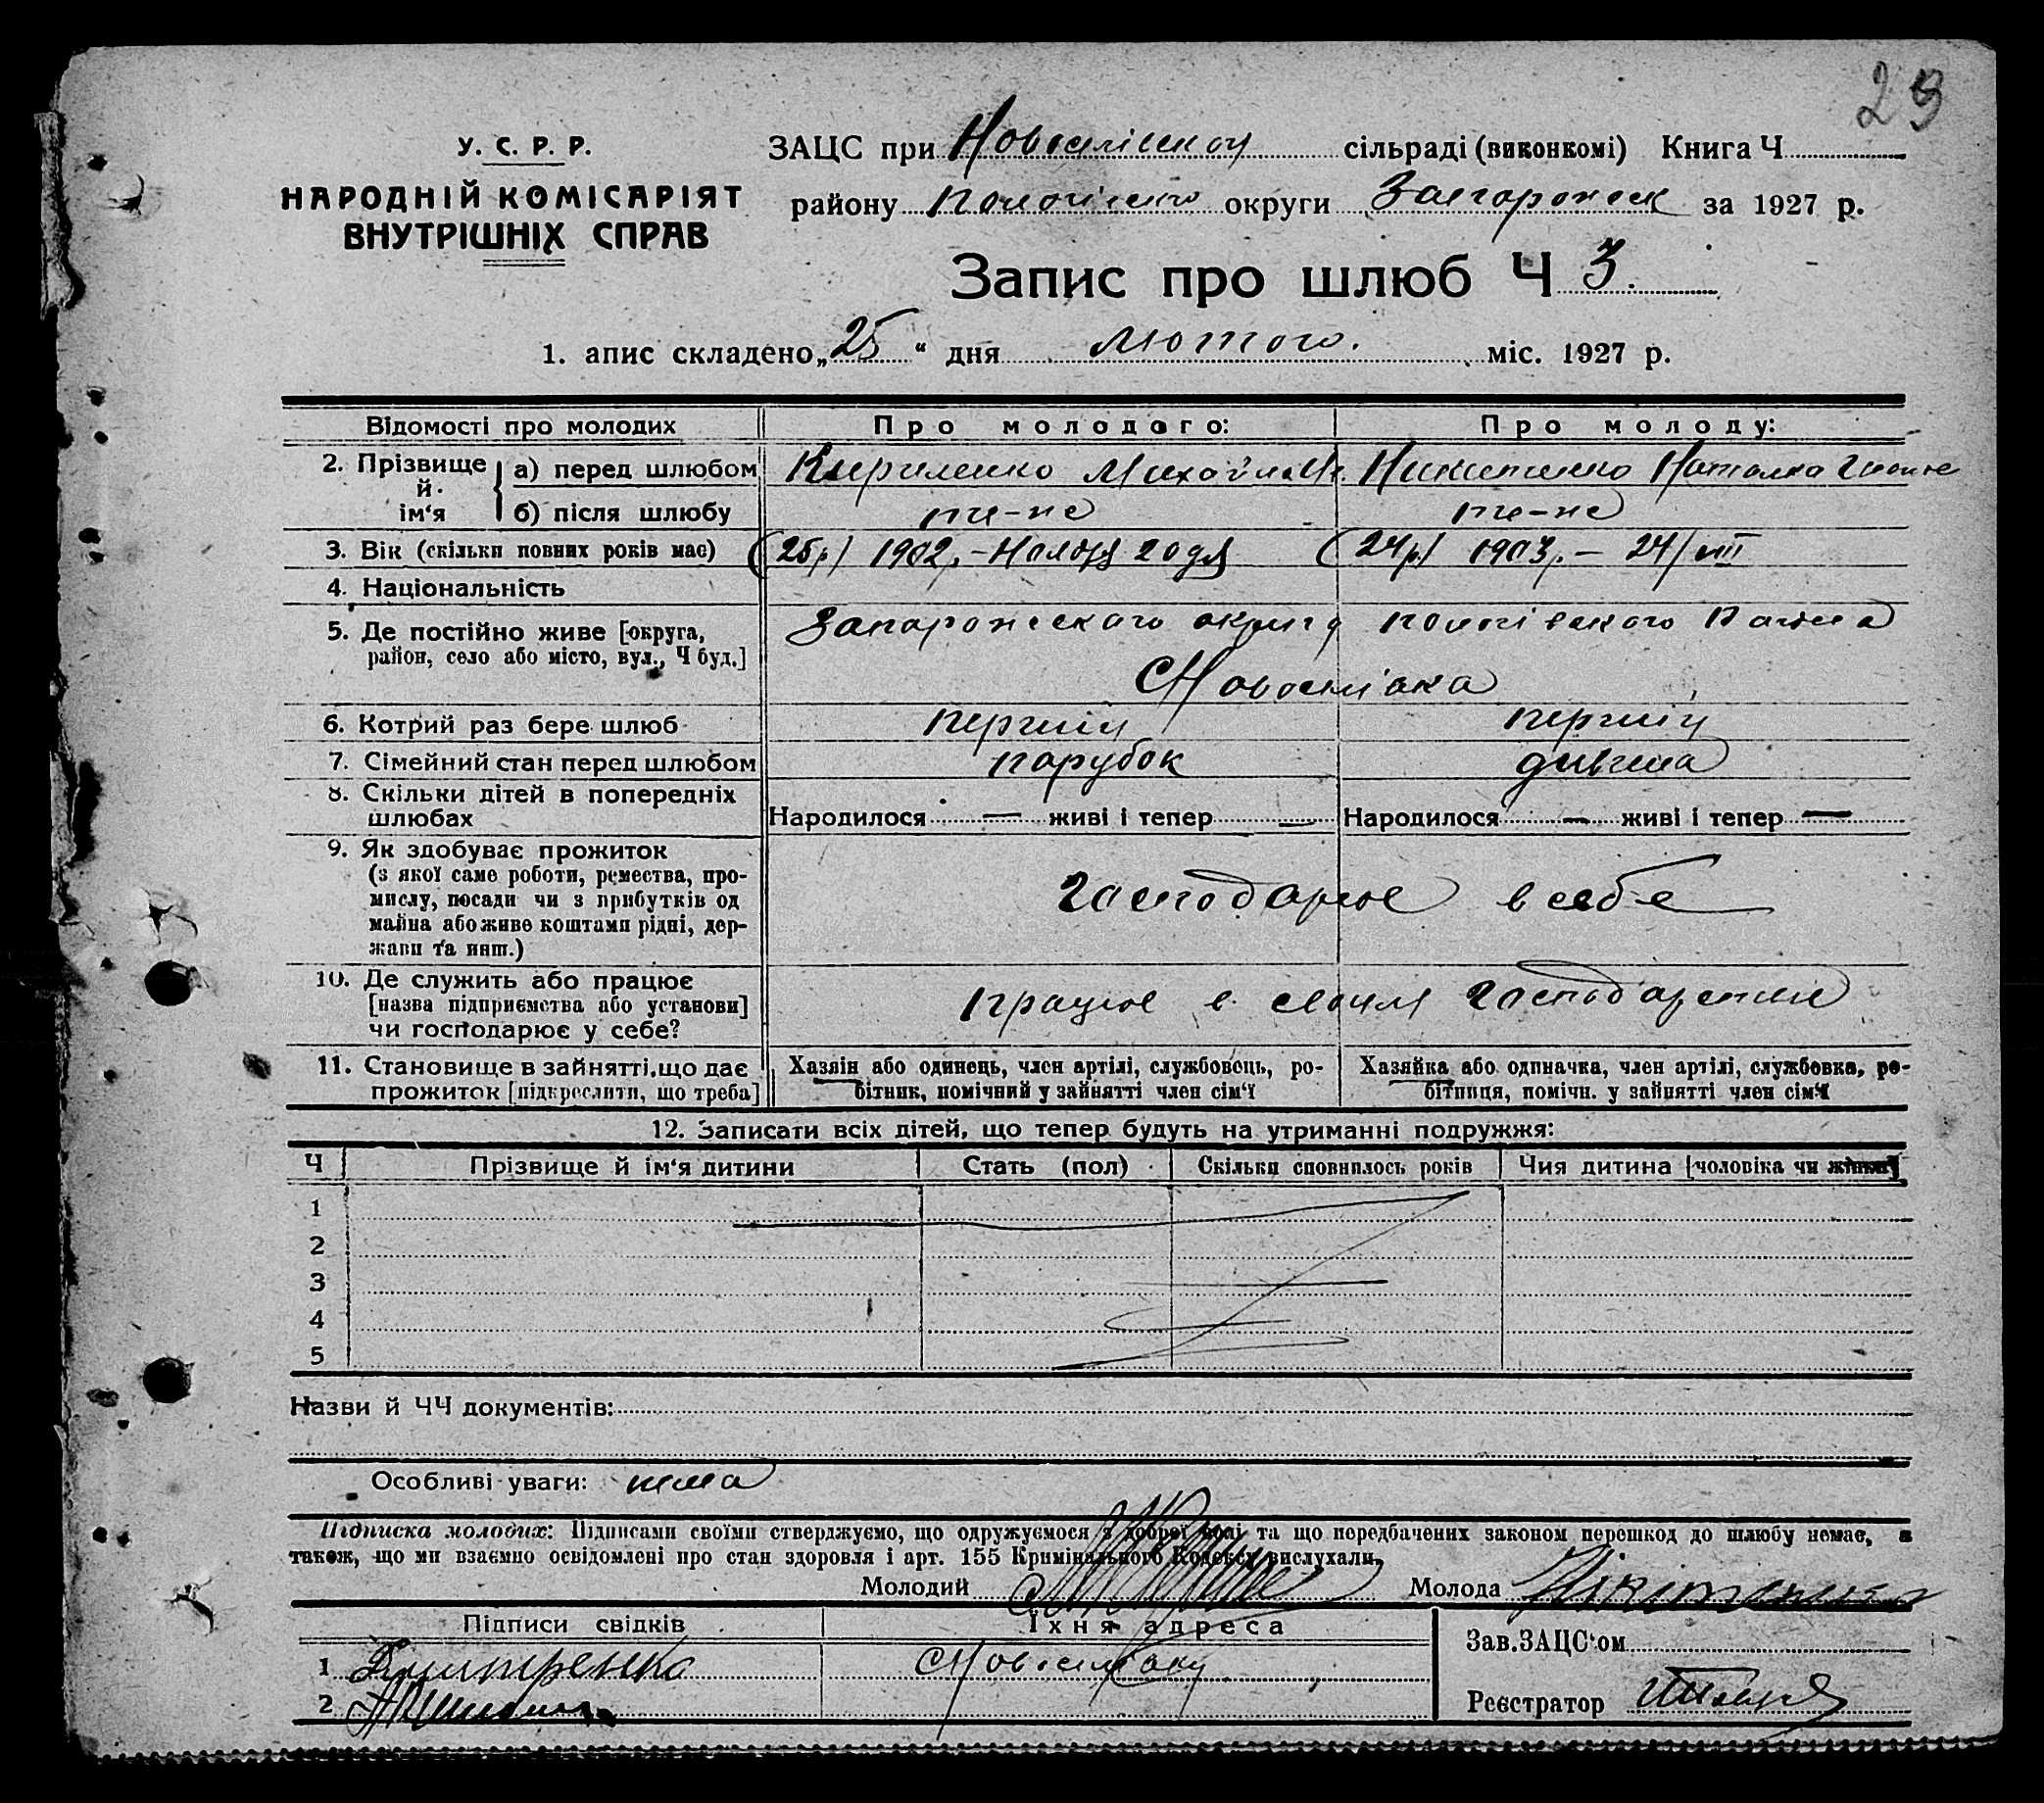 29
У. С. Р. Р.
НАРОДНІЙ КОМІСАРІЯТ
ВНУТРІШНІХ СПРАВ
ЗАЦС при Новоселівскоу сільраді (виконкомі) Книга Ч
району Пологівсько округи Запорожск за 1927 р.
Запис про шлюб Ч 3.
1. апис складено „25“ дня лютого. міс. 1927 р.
Відомості про молодих Про молодого: Про молоду:
2. Прізвище й ім‘я а) перед шлюбом Кириленко Михайло Никитенко Наталка
б) після шлюбу те-не те-не
3. Вік (скільки повних років має) (25р) 1902р. - 20 (24р) 1903р. - 24/VIII
4. Національність
5. Де постійно живе [округа, район, село або місто, вул., Ч буд.] Запорожского округу Пологівского Району
С Новоселівка
6. Котрий раз бере шлюб перший перший
7. Сімейний стан перед шлюбом парубок дивчина
8. Скільки дітей в попередніх шлюбах Народилося — живі і тепер — Народилося — живі і тепер —
9. Як здобуває прожиток
(з якої саме роботи, ремества, про-
мислу, посади чи з прибутків од
майна або живе коштами рідні, дер-
жави та инш.)
Господарює в себе
10. Де служить або працює
[назва підприємства або установи]
чи господарює у себе?
працює в своїм господарстві
11. Становище в зайнятті, що дає
прожиток [підкреслити, що треба]
Хазяїн або одинець, член артілі, службовець, ро-
бітник, помічний у зайнятті член сім‘ї
Хазяйка або одиначка, член артілі, службовка, ро-
бітниця, помічн. у зайнятті член сім‘ї
12. Записати всіх дітей, що тепер будуть на утриманні подружжя:
Ч Прізвище й ім‘я дитини Стать (пол) Скільки сповнилось років Чия дитина [чоловіка чи жінки]
1
2
3
4
5
Назви й ЧЧ документів:
Особливі уваги: нема
Підписка молодих: Підписами своїми стверджуємо, що одружуємося з доброї волі та що передбачених законом перешкод до шлюбу немає, а
також, що ми взаємно освідомлені про стан здоровля і арт. 155 Кримінального Кодексу вислухали.
Молодий Молода Нікітенкова
Підписи свідків Їхня адреса Зав.ЗАЦС‘ом
1 Дмитренко С Новоселівку
2 Реєстратор